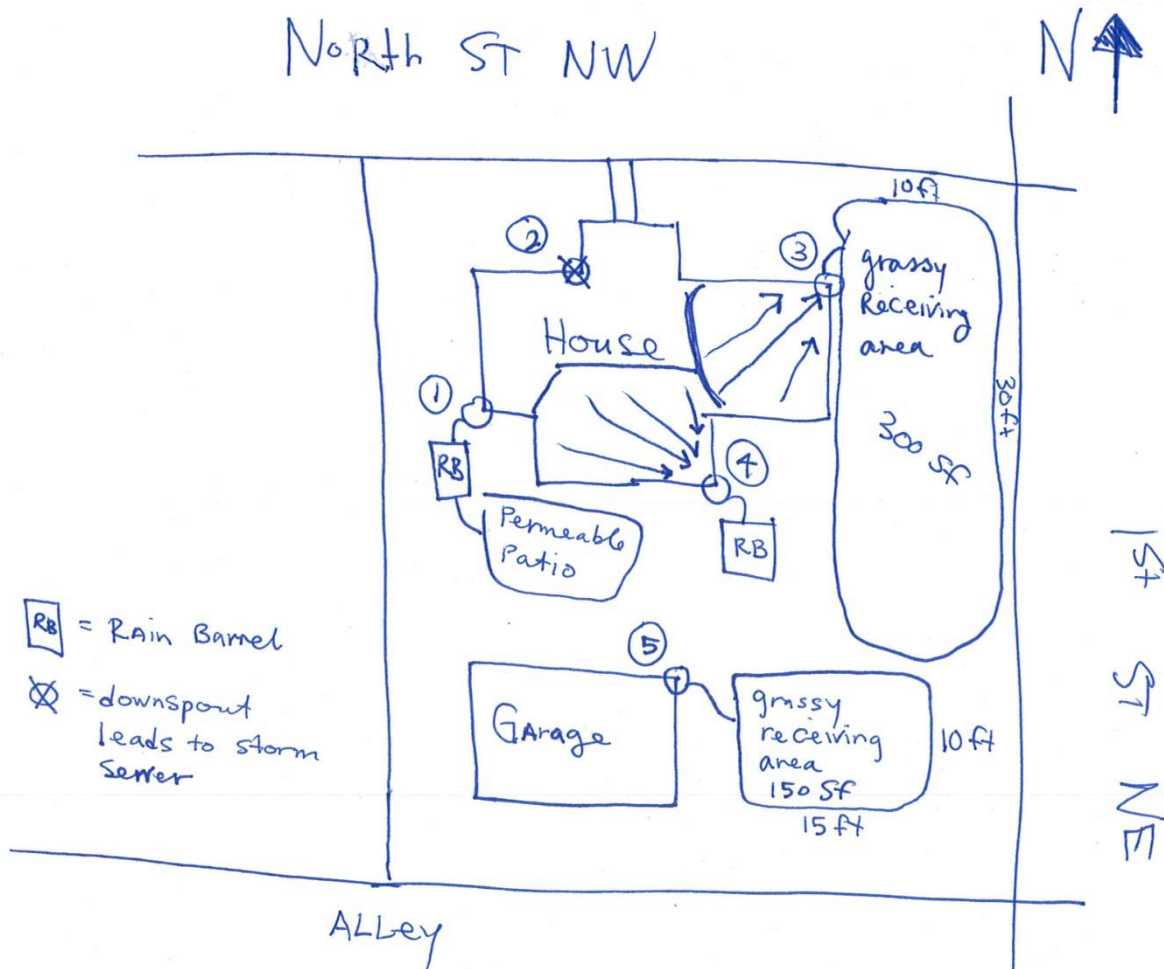 North ST NW
N
10ft
②
③
grassy
Receiving
area
House
①
30ft
300 Sf
RB
④
Permeable
Patio
RB
1st ST NE
RB = RAin Barrel
⑤
= downspout
leads to storm
sewer
GArage
grassy
receiving
area
150 Sf
10ft
15ft
ALLey